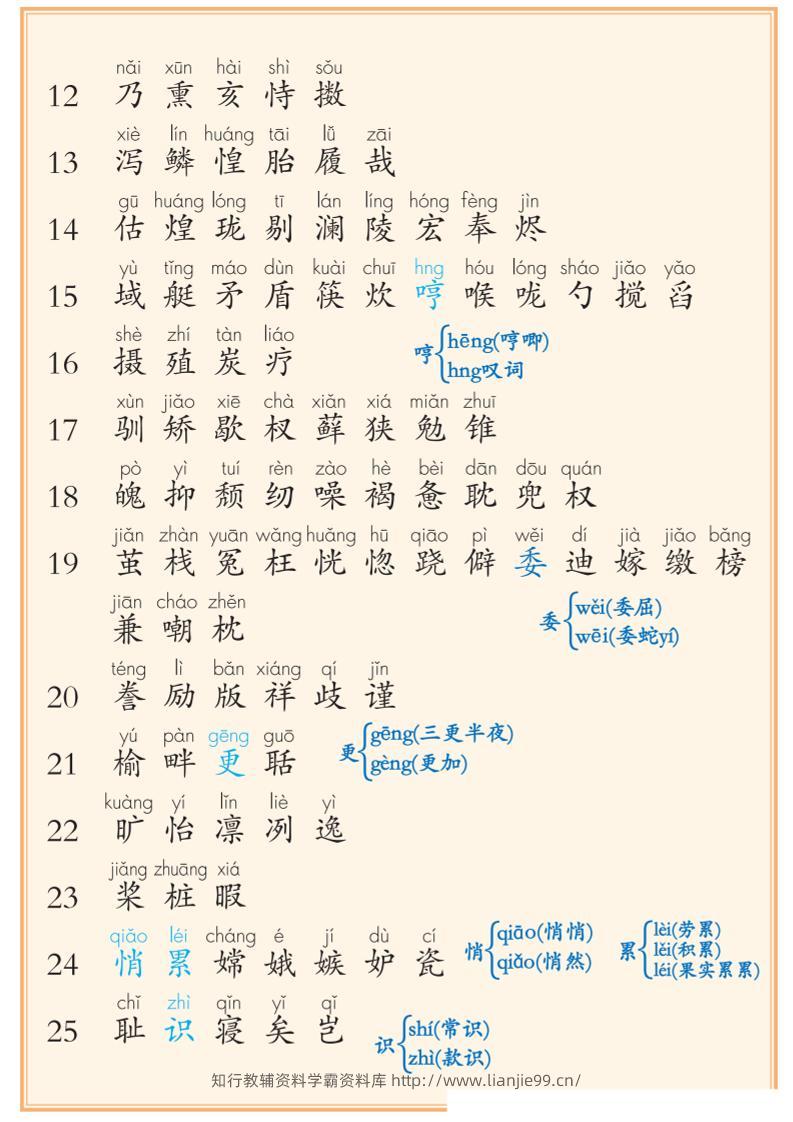 nǎi xūn hài shì sǒu
12 乃 熏 亥 恃 擞
xiè lín huáng tāi lǚ zāi
13 泻 鳞 惶 胎 履 哉
gū huáng lóng tī lán líng hóng fèng jìn
14 估 煌 珑 剔 澜 陵 宏 奉 烬
yù tǐng máo dùn kuài chuī hng hóu lóng sháo jiǎo yǎo
15 域 艇 矛 盾 筷 炊 哼 喉 咙 勺 搅 舀
shè zhí tàn liáo
16 摄 殖 炭 疗
哼 hēng(哼唧)
hng叹词
xùn jiǎo xiē chà xiǎn xiá miǎn zhuī
17 驯 矫 歇 杈 藓 狭 勉 锥
pò yì tuí rèn zào hè bèi dān dōu quán
18 魄 抑 颓 纫 噪 褐 惫 耽 兜 权
jiǎn zhàn yuān wǎng huǎng hū qiāo pì wěi dí jià jiǎo bǎng
19 茧 栈 冤 枉 恍 惚 跷 僻 委 迪 嫁 缴 榜
jiān cháo zhěn
兼 嘲 枕
委 wěi(委屈)
wēi(委蛇yí)
téng lì bǎn xiáng qí jǐn
20 誊 励 版 祥 歧 谨
yú pàn gēng guō
21 榆 畔 更 聒
更 gēng(三更半夜)
gèng(更加)
kuàng yí lǐn liè yì
22 旷 怡 凛 冽 逸
jiǎng zhuāng xiá
23 桨 桩 暇
qiǎo léi cháng é jí dù cí
24 悄 累 嫦 娥 嫉 妒 瓷
悄 qiāo(悄悄)
qiǎo(悄然)
累 lèi(劳累)
lěi(积累)
léi(果实累累)
chǐ zhì qǐn yǐ qǐ
25 耻 识 寝 矣 岂
识 shí(常识)
zhì(款识)
知行教辅资料学霸资料库 http://www.lianjie99.cn/